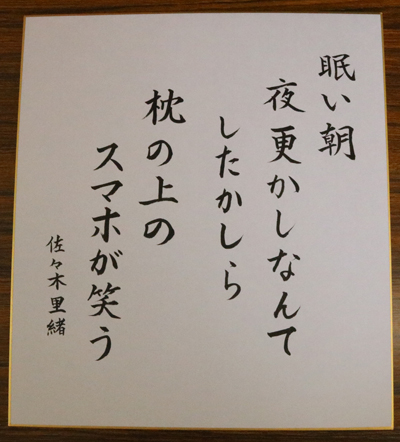 眠い朝
夜更かしなんて
したかしら
枕の上の
スマホが笑う
佐々木里緒